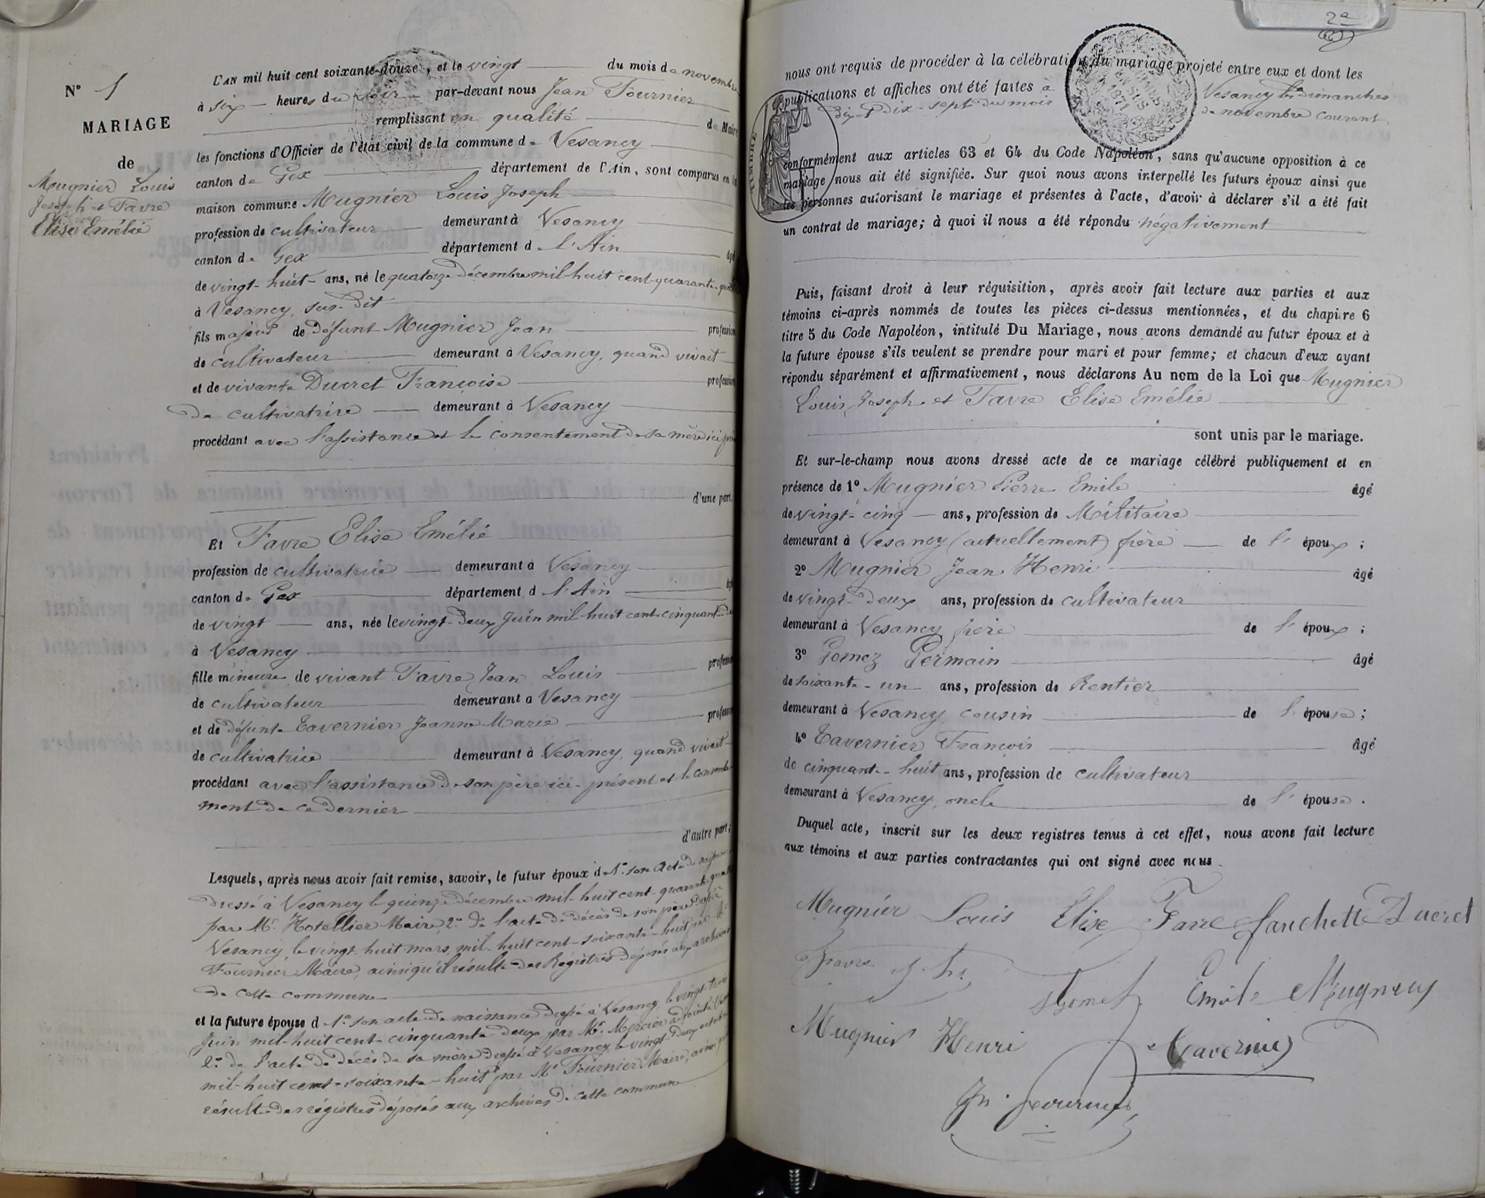 N° 1
MARIAGE
de
Mugnier Louis
Joseph et Favre
Elise Emélie
L'AN mil huit cent soixante-douze, et le vingt du mois de novembre
à six heures du soir par-devant nous Jean Fournier
remplissant en qualité de Maire
les fonctions d'Officier de l'état civil de la commune de Vesancy
canton de Gex département de l'Ain, sont comparus en la
maison commune Mugnier Louis Joseph
profession de cultivateur demeurant à Vesancy
canton de Gex département de l'Ain âgé
de vingt-huit ans, né le quatorze décembre mil huit cent quarante-
à Vesancy, sus-dit
fils majeur de défunt Mugnier Jean profession
de cultivateur demeurant à Vesancy, quand vivait
et de vivante Ducret Françoise profession
de cultivatrice demeurant à Vesancy
procédant avec l'assistance et le consentement de sa mère ici
d'une part,
Et Favre Elise Emélie
profession de cultivatrice demeurant à Vesancy
canton de Gex département de l'Ain
de vingt ans, née le vingt-deux Juin mil huit cent cinquante-
à Vesancy
fille mineure de vivant Favre Jean Louis profession
de cultivateur demeurant à Vesancy
et de défunte Tavernier Jeanne Marie profession
de cultivatrice demeurant à Vesancy, quand vivait
procédant avec l'assistance de son père ici présent et le consente-
ment de ce dernier
d'autre part;
Lesquels, après nous avoir fait remise, savoir, le futur époux d 1° son acte de
dressé à Vesancy le quinze décembre mil huit cent quarante-
par Mr Hotellier Maire 2° de l'acte de décès de son père
Vesancy, le vingt-huit mars mil huit cent soixante-huit par Mr
Fournier Maire, ainsi qu'il résulte des Registres déposés aux archives
de cette commune
et la future épouse d 1° son acte de naissance dressé à Vesancy le vingt-
Juin mil huit cent cinquante-deux par Mr Mercier adjoint
2° de l'acte de décès de sa mère dressé à Vesancy le vingt-deux
mil-huit cent-soixante-huit par Mr Fournier Maire, ainsi
résulte des régistres déposés aux archives de cette commune
2e
nous ont requis de procéder à la célébration du mariage projeté entre eux et dont les
publications et affiches ont été faites à Vesancy les dimanches
dix et dix-sept du mois de novembre courant.
conformément aux articles 63 et 64 du Code Napoléon, sans qu'aucune opposition à ce
mariage nous ait été signifiée. Sur quoi nous avons interpellé les futurs époux ainsi que
les personnes autorisant le mariage et présentes à l'acte, d'avoir à déclarer s'il a été fait
un contrat de mariage; à quoi il nous a été répondu négativement
Puis, faisant droit à leur réquisition, après avoir fait lecture aux parties et aux
témoins ci-après nommés de toutes les pièces ci-dessus mentionnées, et du chapitre 6
titre 5 du Code Napoléon, intitulé Du Mariage, nous avons demandé au futur époux et à
la future épouse s'ils veulent se prendre pour mari et pour femme; et chacun d'eux ayant
répondu séparément et affirmativement, nous déclarons Au nom de la Loi que Mugnier
Louis Joseph et Favre Elise Emélie
sont unis par le mariage.
Et sur-le-champ nous avons dressé acte de ce mariage célébré publiquement et en
présence de 1° Mugnier Pierre Emile âgé
de vingt-cinq ans, profession de Militaire
demeurant à Vesancy (actuellement) frère de l'époux;
2° Mugnier Jean Henri âgé
de vingt-deux ans, profession de cultivateur
demeurant à Vesancy frère de l'époux;
3° Gomez Germain âgé
de soixante-un ans, profession de Rentier
demeurant à Vesancy cousin de l'épouse;
4° Tavernier François âgé
de cinquante-huit ans, profession de cultivateur
demeurant à Vesancy, oncle de l'épouse.
Duquel acte, inscrit sur les deux registres tenus à cet effet, nous avons fait lecture
aux témoins et aux parties contractantes qui ont signé avec nous.
Mugnier Louis Elise Favre fanchette Ducret
Favre
Gomez Emile Mugnier
Mugnier Henri Tavernier
Jn. Fournier